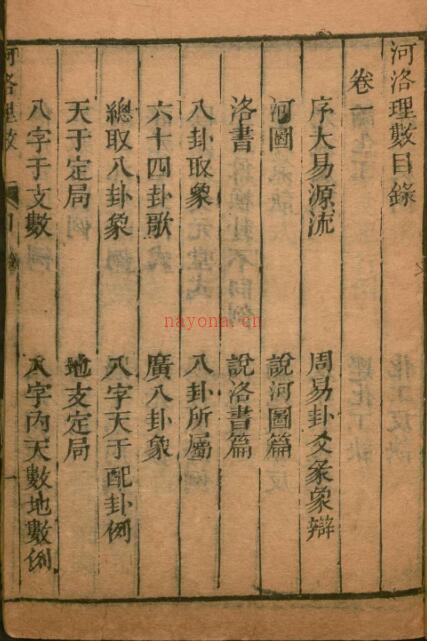 河洛理數目錄
卷一
序大易源流
周易卦爻彖象辯
河圖
說河圖篇
洛書
說洛書篇
八卦取象
八卦所屬
六十四卦歌
廣八卦象
總取八卦象
八字天干配卦例
天干定局
地支定局
八字干支數
八字內天數地數例
河洛理數
目
一
nayona.cn